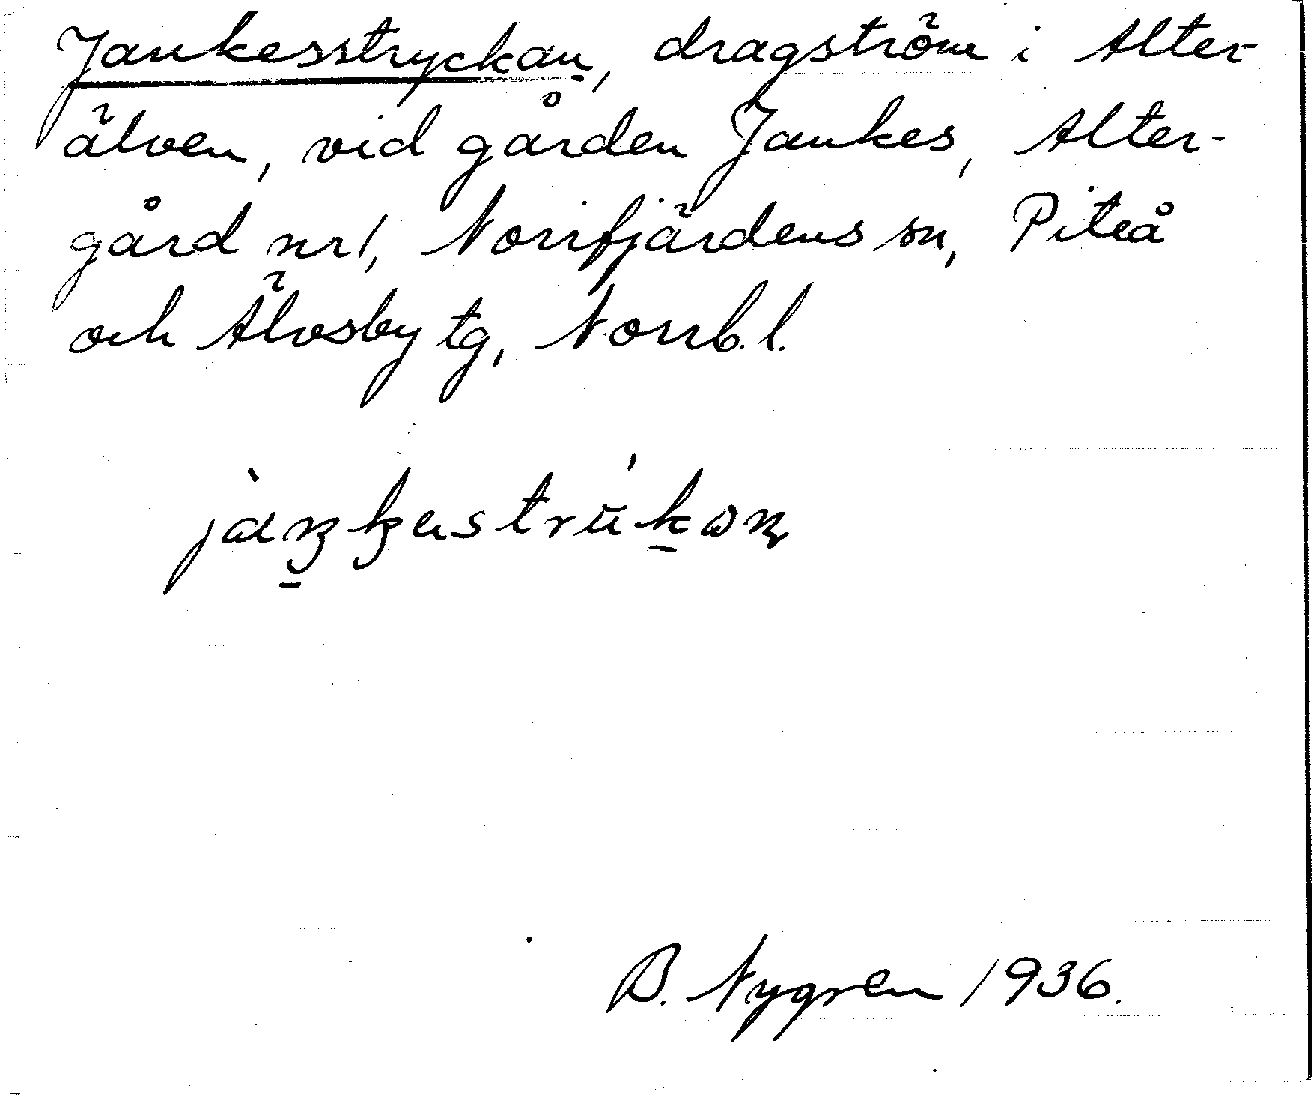 Jankesstryckan, dragström i Alter-
älven, vid gården Jankes, Alter-
gård nr 1, Norrfjärdens sn, Piteå
och Älvsby tg, Norrb. l.
B. Nygren 1936.